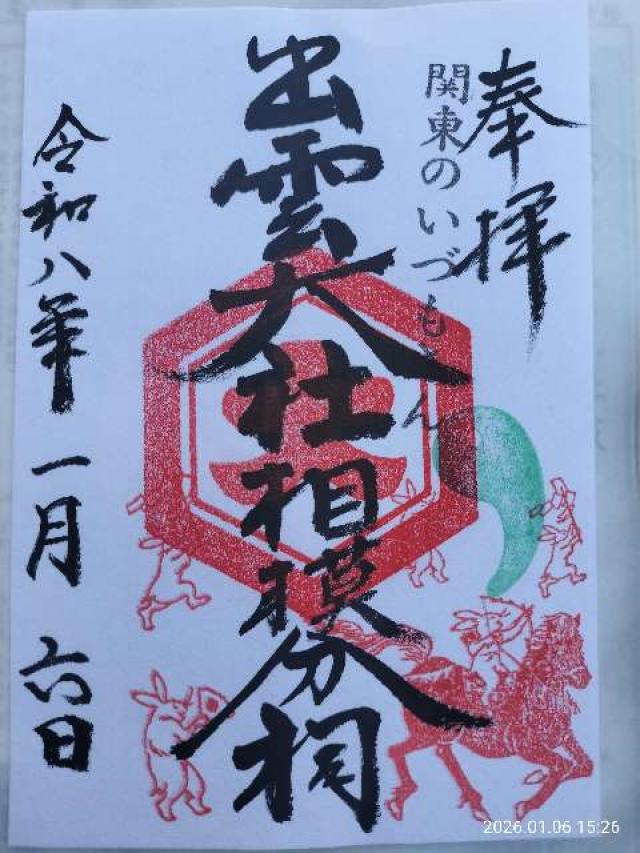 奉拝
関東のいづもさん
出雲大社相模分祠
令和八年一月六日
2026.01.06 15:26